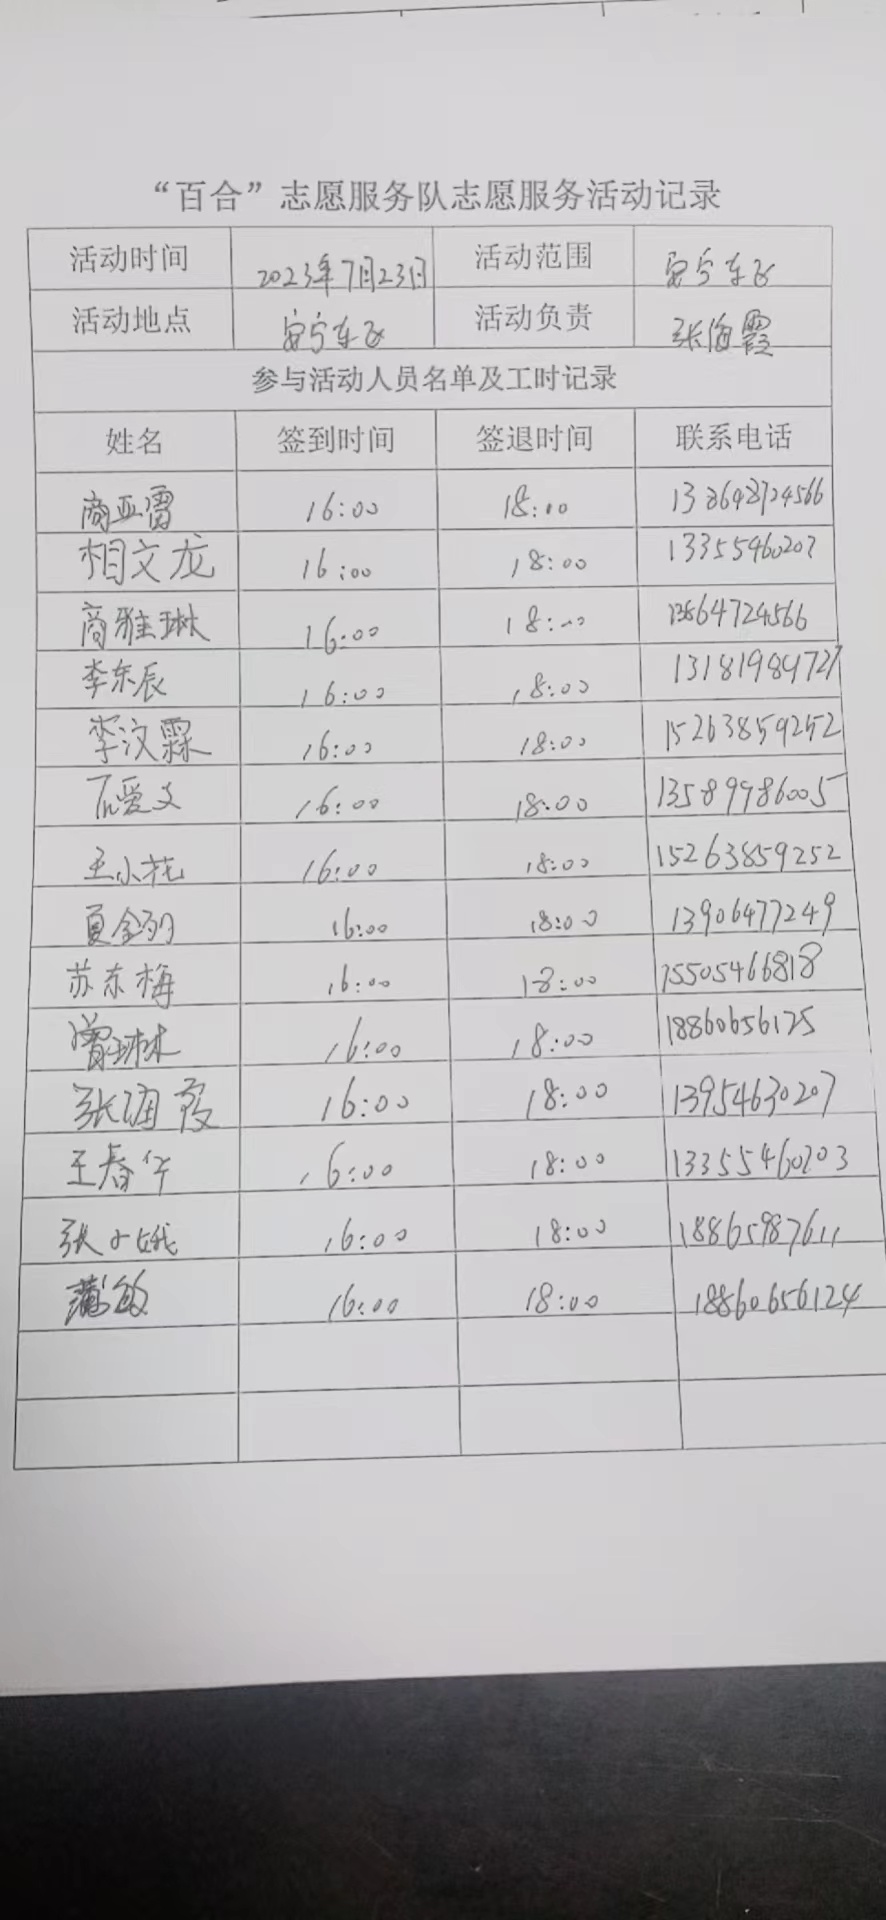 “百合”志愿服务队志愿服务活动记录
活动时间 2023年7月23日 活动范围 安宁东区
活动地点 安宁东区 活动负责 张海霞
参与活动人员名单及工时记录
姓名 签到时间 签退时间 联系电话
商亚雷 16:00 18:00
相文龙 16:00 18:00 13355460207
商雅琳 16:00 18:00 13864724566
李东辰 16:00 18:00 13181984727
李汶霖 16:00 18:00 15263859252
石爱文 16:00 18:00 13589986005
王小花 16:00 18:00 15263859252
夏 16:00 18:00 13906477249
苏东梅 16:00 18:00 15505466818
曾琳 16:00 18:00 18860656125
张海霞 16:00 18:00 13954630207
王春华 16:00 18:00 13355460203
张小娥 16:00 18:00 18865987611
蒲敏 16:00 18:00 18860656124